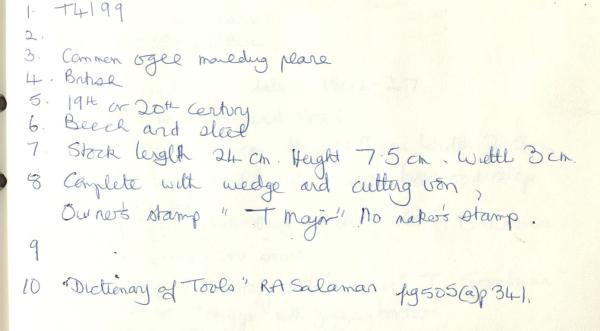 1. T4199
2.
3. Common ogee moulding plane
4. British
5. 19th or 20th century
6. Beech and steel
7 Stock length 24 cm. Height 7.5 cm. Width 3 cm.
8 Complete with wedge and cutting iron,
Owner's stamp "T Major" No maker's stamp.
9
10 "Dictionary of Tools" RA Salaman fig 505(a) p 341.